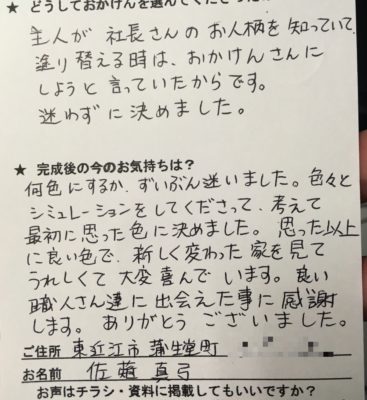 ★ どうしておかけんを選んでくださった
主人が社長さんのお人柄を知っていて、
塗り替える時は、おかけんさんに
しようと言っていたからです。
迷わずに決めました。
★ 完成後の今のお気持ちは？
何色にするか、ずいぶん迷いました。色々と
シミュレーションをしてくださって、考えて
最初に思った色に決めました。思った以上
に良い色で、新しく変わった家を見て
うれしくて大変喜んでいます。良い
職人さん達に出会えた事に感謝
します。ありがとうございました。
ご住所 東近江市蒲生堂町
お名前 佐 真弓
お声はチラシ・資料に掲載してもいいですか？